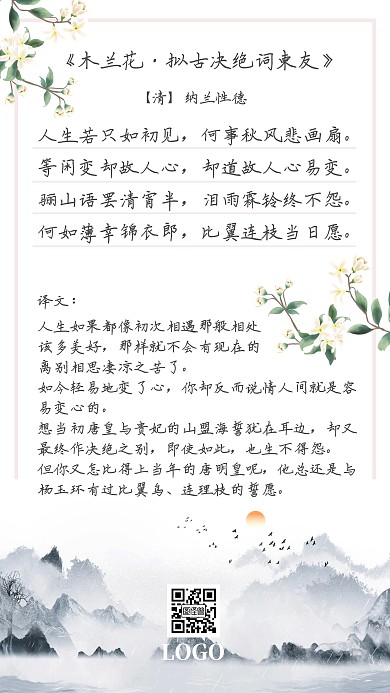 《木兰花·拟古决绝词柬友》
【清】 纳兰性德
人生若只如初见，何事秋风悲画扇。
等闲变却故人心，却道故人心易变。
骊山语罢清宵半，泪雨霖铃终不怨。
何如薄幸锦衣郎，比翼连枝当日愿。
译文：
人生如果都像初次相遇那般相处
该多美好，那样就不会有现在的
离别相思凄凉之苦了。
如今轻易地变了心，你却反而说情人间就是容
易变心的。
想当初唐皇与贵妃的山盟海誓犹在耳边，却又
最终作决绝之别，即使如此，也生不得怨。
但你又怎比得上当年的唐明皇呢，他总还是与
杨玉环有过比翼鸟、连理枝的誓愿。
LOGO